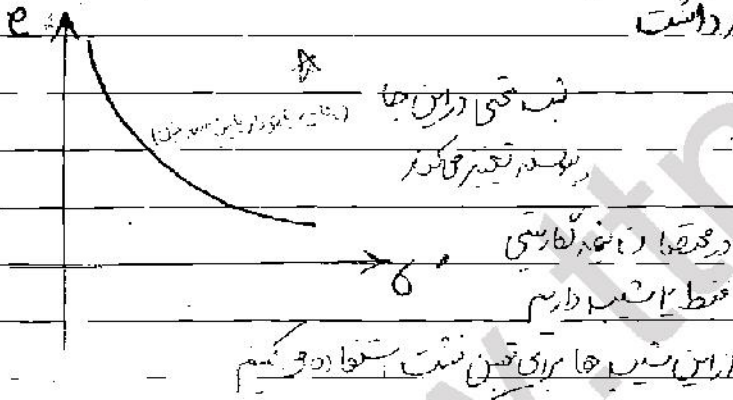 e
شیب منحنی در این جا
پیوسته تغییر می‌کند
در مختصات نیمه لگاریتمی
σ'
فقط ۲ شیب داریم
از این شیب ها برای تعیین نشست استفاده می کنیم